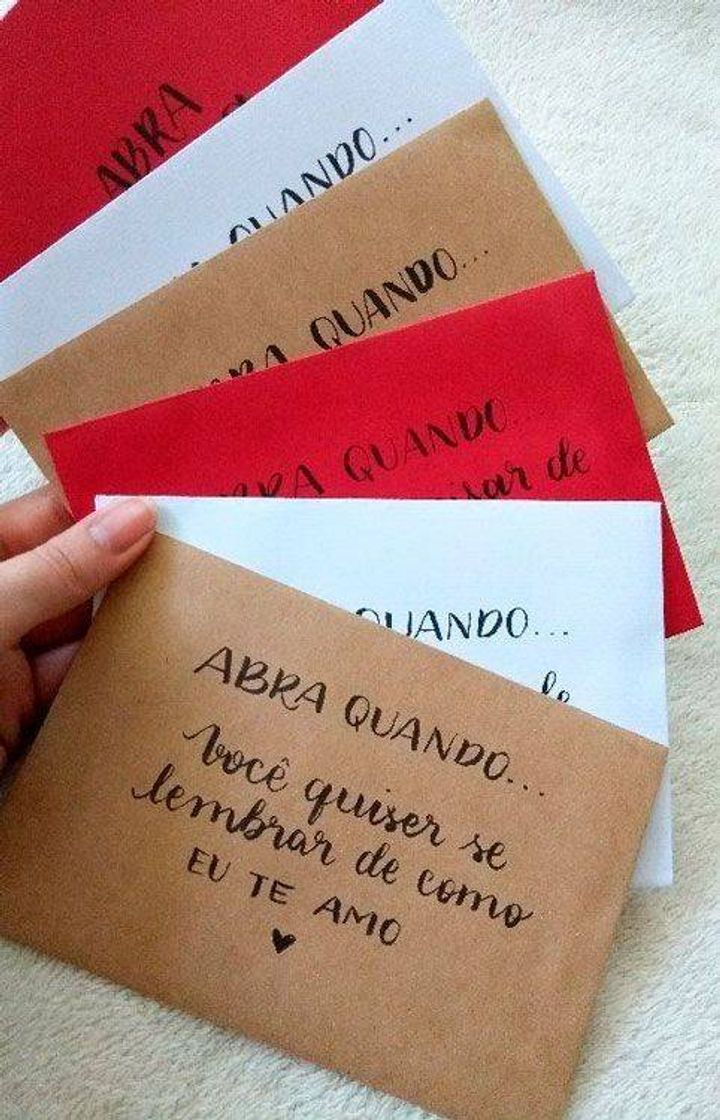 ABRA
QUANDO...
QUANDO...
ABRA QUANDO
de
QUANDO...
ABRA QUANDO...
Você quiser se
lembrar de como
EU TE AMO